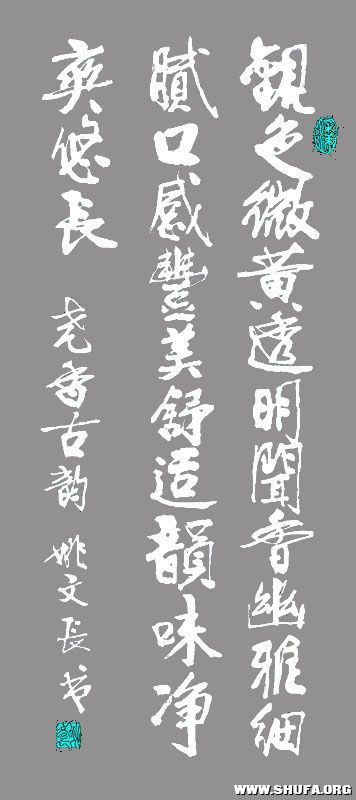 觀色微黄透明聞香幽雅細
膩口感豐美舒适韻味净
爽悠長
尧香古韵 姚文長书
WWW.SHUFA.ORG